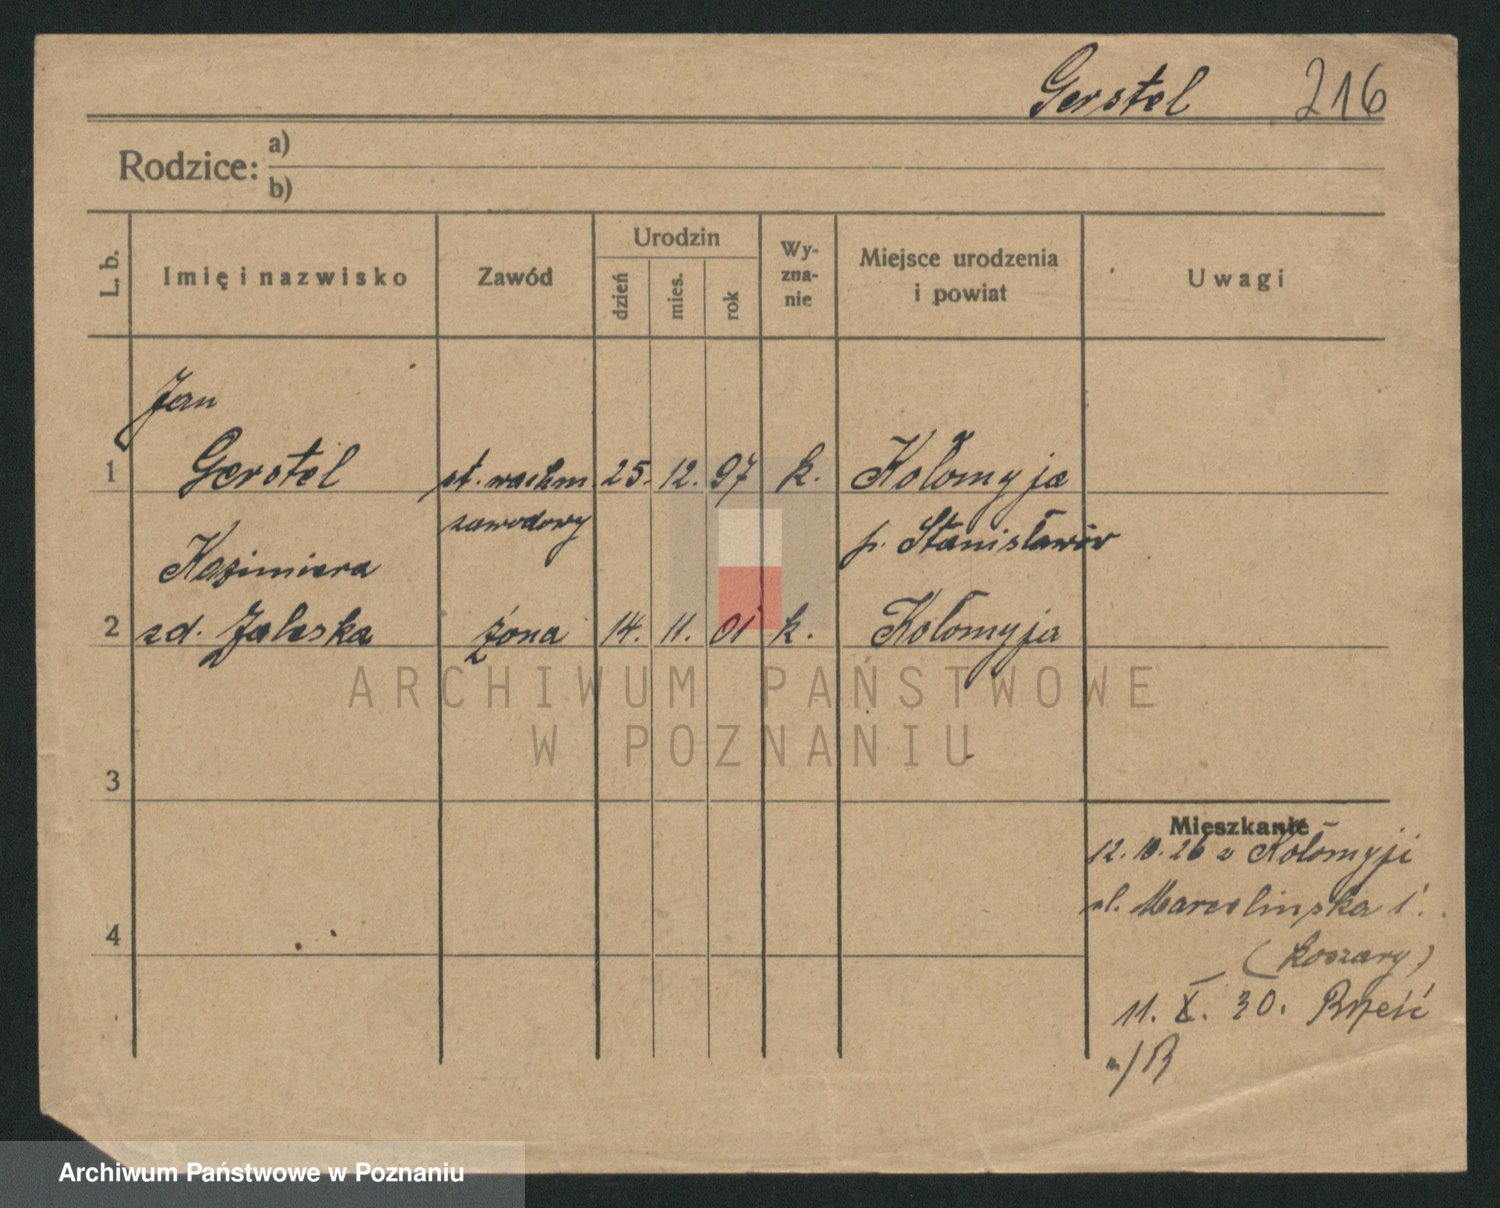 Gerstel 216
Rodzice: a)
b)
L. b.
Imię i nazwisko
Zawód
Urodzin
dzień
mies.
rok
Wy-
zna-
nie
Miejsce urodzenia
i powiat
Uwagi
Jan
1 Gerstel st. wachm. 25. 12. 97 k. Kołomyja
zawodowy p. Stanisławów
Kazimiera
2 zd. Zaleska żona 14. 11. 01 k. Kołomyja
ARCHIWUM PAŃSTWOWE
W POZNANIU
3
Mieszkanie
12. 10. 26 z Kołomyji
ul. Marcelińska 1.
4
(koszary)
11. X. 30. Brześć
n/B
Archiwum Państwowe w Poznaniu